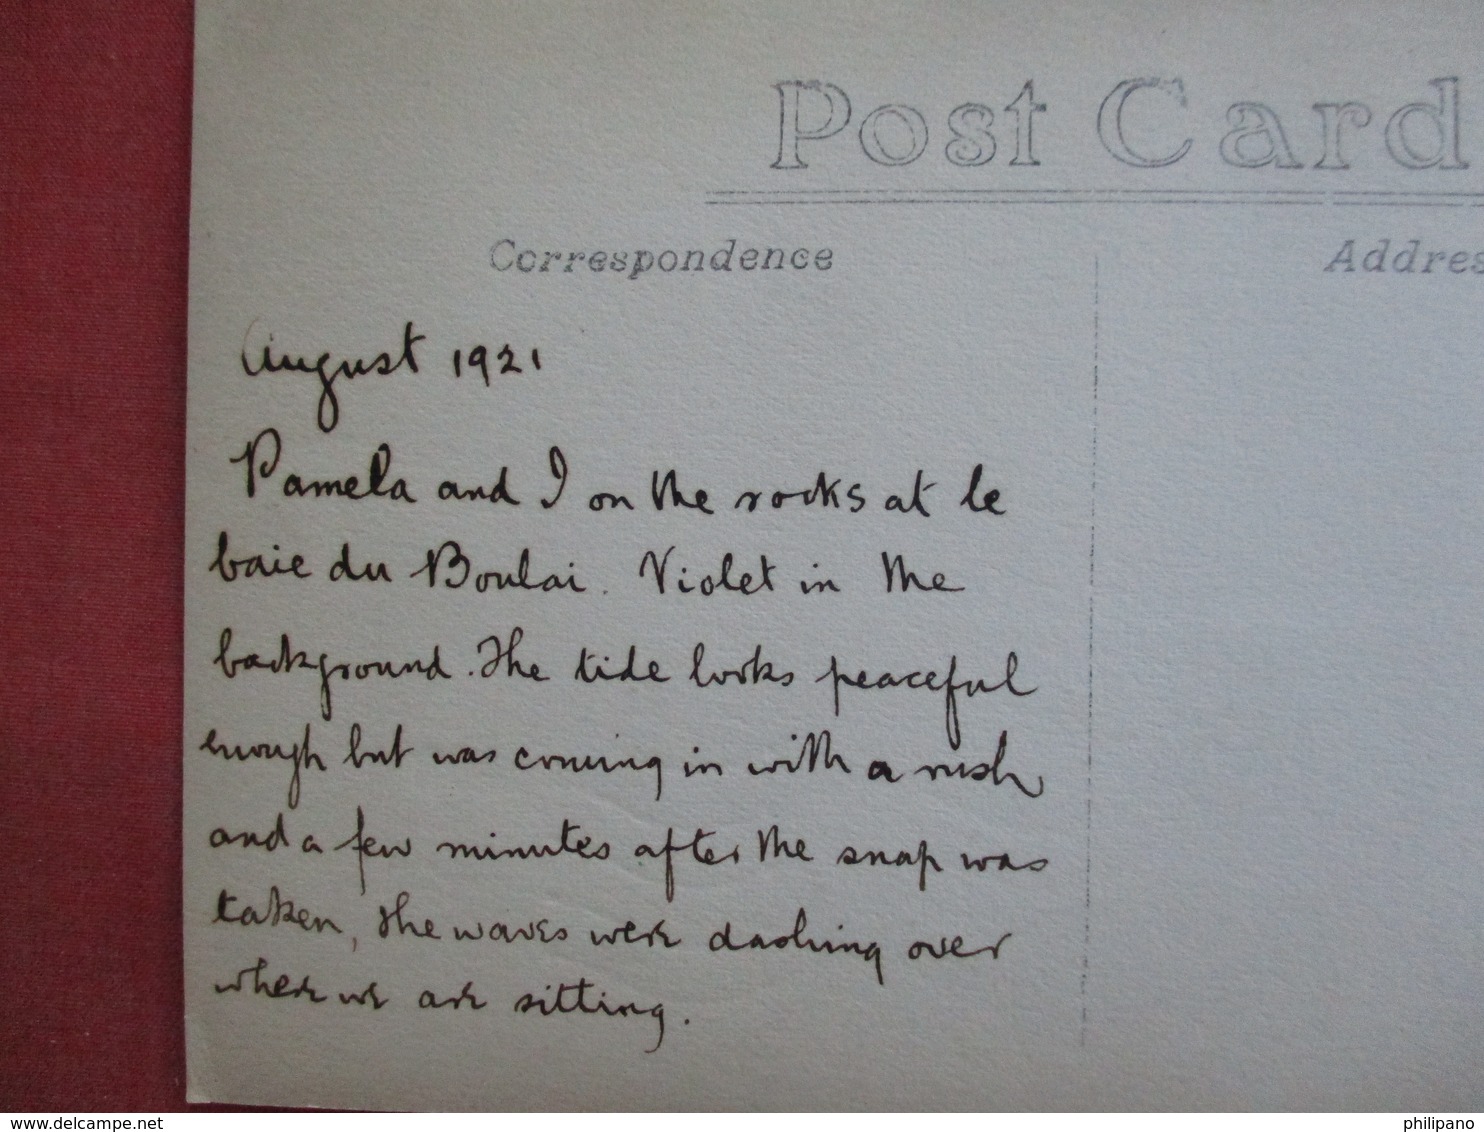 Post Card
Correspondence
Addres
August 1921
Pamela and I on the rocks at le
baie du Boulai. Violet in the
background. The tide looks peaceful
enough but was coming in with a rush
and a few minutes after the snap was
taken, the waves were dashing over
where we are sitting.
www.delcampe.net
philipano